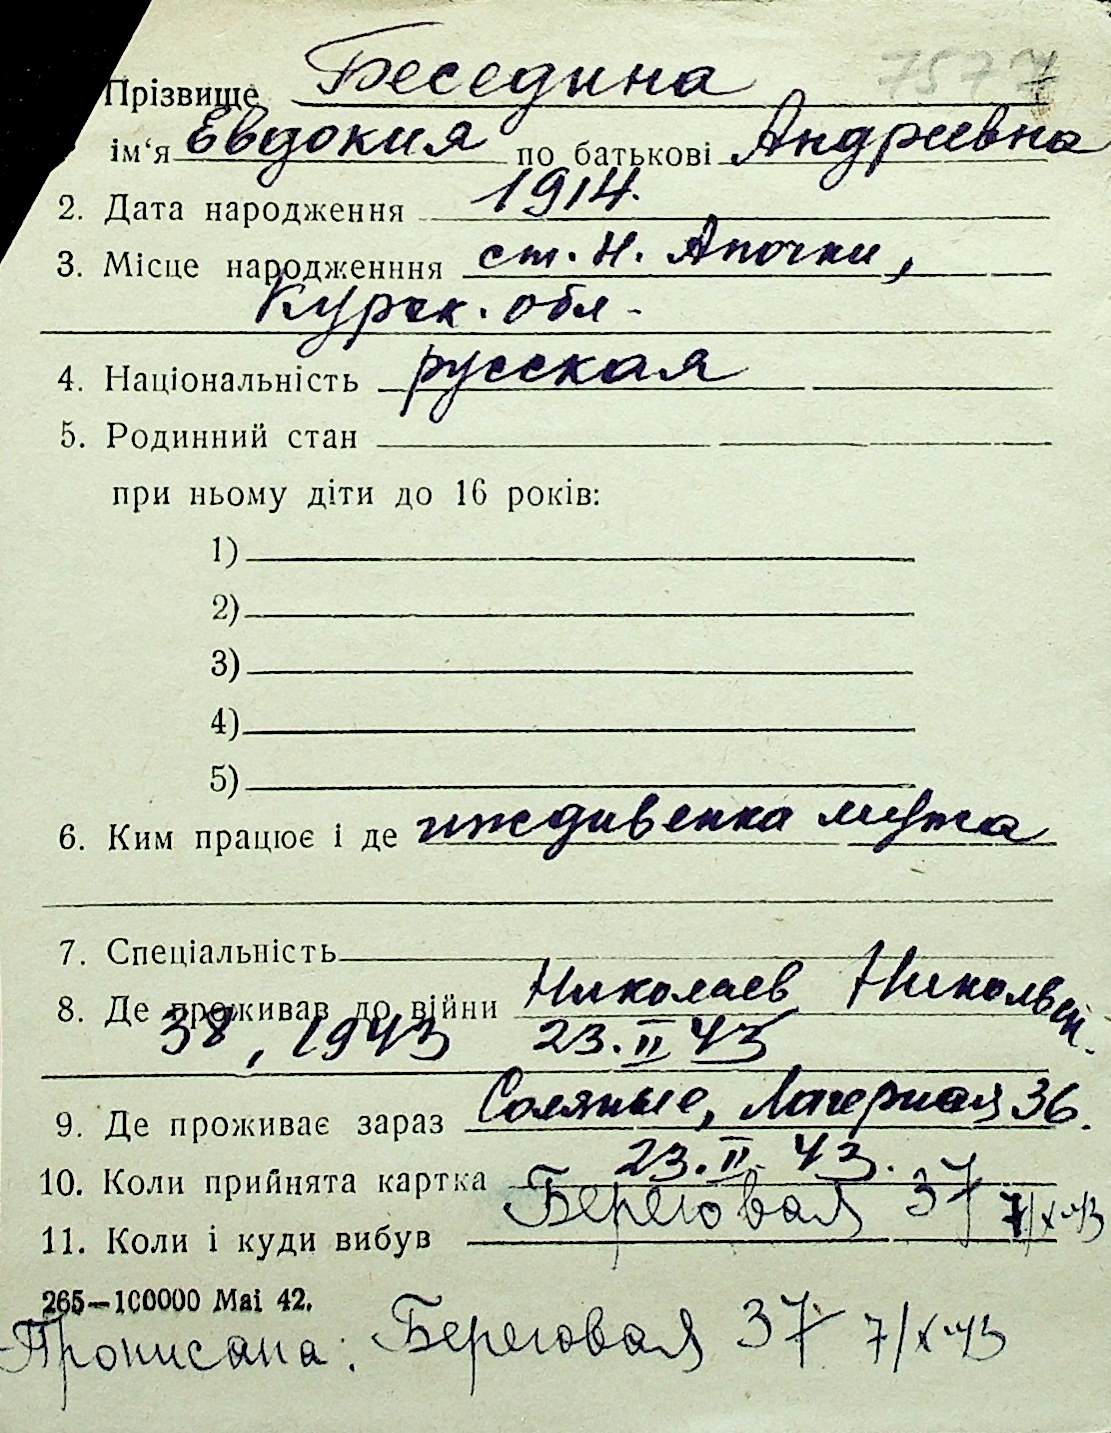 7577
Прізвище Беседина
ім‘я Евдокия по батькові Андреевна
2. Дата народження 1914.
3. Місце народженння ст. Н. Апочки,
Курск. обл.
4. Національність русская
5. Родинний стан
при ньому діти до 16 років:
1)
2)
3)
4)
5)
6. Ким працює і де иждивенка мужа
7. Спеціальність
8. Де проживав до війни Николаев Никольск.
38, 1943 23.II 43
9. Де проживає зараз Соляные, Лагерная 36.
10. Коли прийнята картка 23.II. 43.
Береговая 37 7/X-43
11. Коли і куди вибув
265—100000 Mai 42.
Прописана: Береговая 37 7/X-43